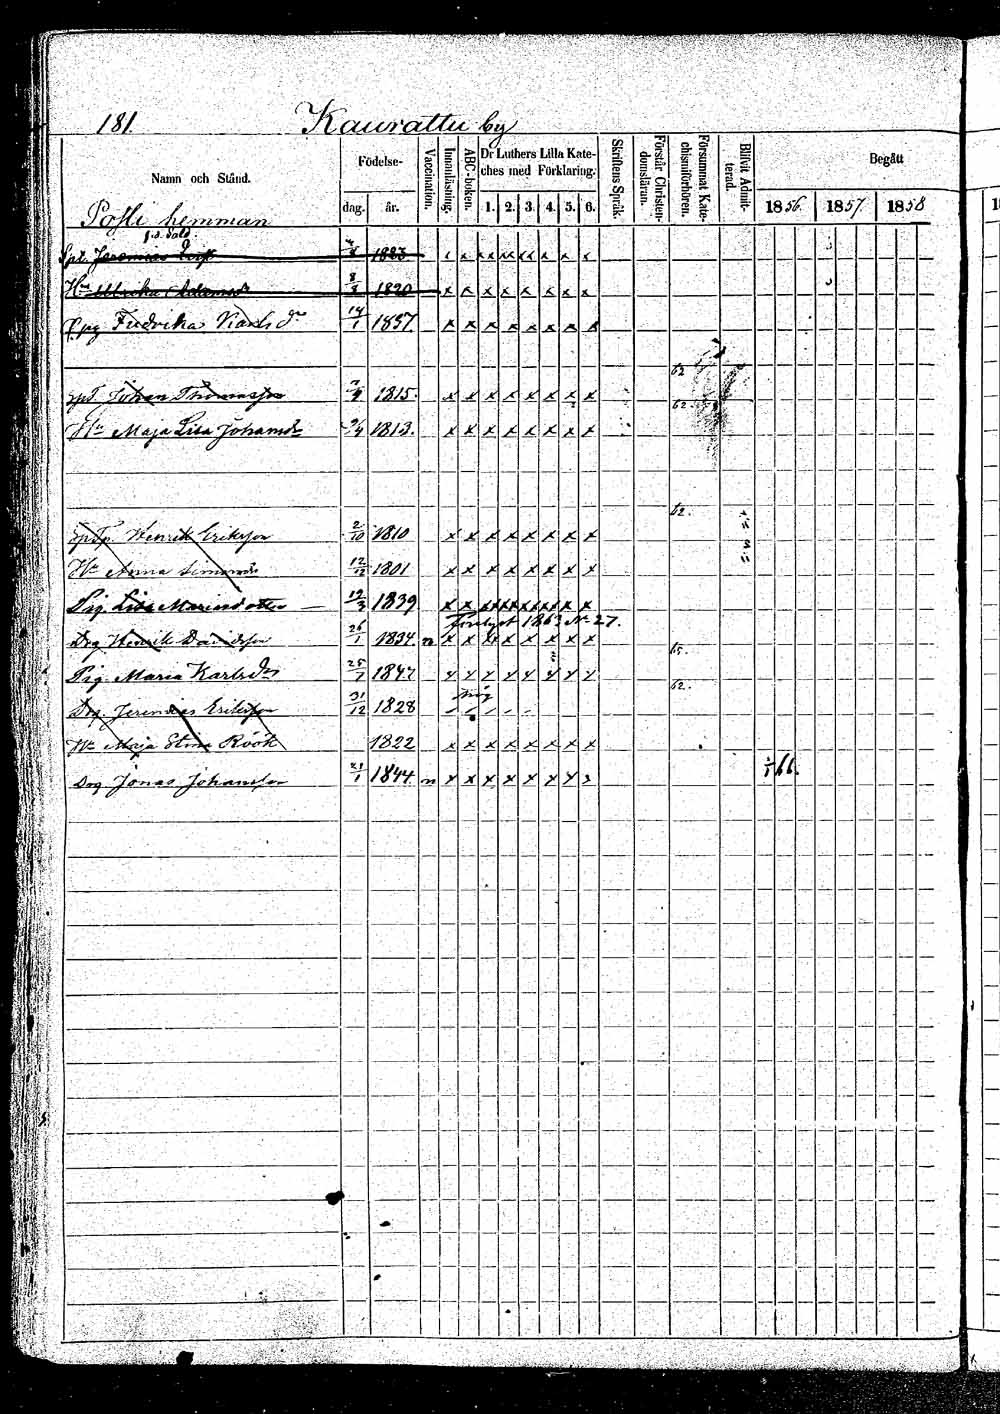 181.
Kaurattu by
Namn och Stånd.
Födelse-
dag.
år.
Vaccination.
Innanläsning.
ABC-boken.
Dr Luthers Lilla Kate-
ches med Förklaring.
1. 2. 3. 4. 5. 6.
Skriftens Språk.
Förstår Christen-
domsläran.
Försummat Kate-
chismiförhören.
Blifvit Admit-
terad.
Begått
1856. 1857. 1858
hemman
f.d. Sold.
Jeremias 1823
Hu Ulrika Adamsd 8/3 1820
Pig Fredrika Karlsdr 14/1 1837
62
Johan Thomasson 1815.
62.
Hu Maja Lisa Johansdr 1813.
62.
Henrik Eriksson 2/10 1810
Hu Anna Simonsdr 12/12 1801
Pig. Lisa Mariasdotter 19/3 1839
1863 No 27.
Drg Henrik Davidsson 26/1 1834
65.
Pig. Maria Karlsdr 25/7 1847
62.
Drg. Jeremias Eriksson 31/12 1828
Hu Maja Stina Röök 1822
Drg Jonas Johansson 21/1 1844
66.